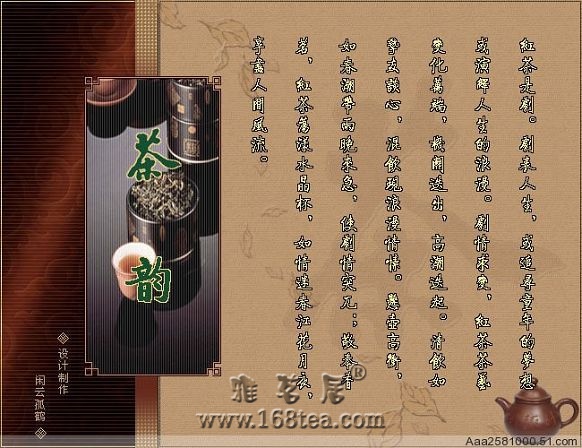 紅茶是劇。劇表人生,或追尋童年的夢想
或演繹人生的浪漫。劇情求變,紅茶茶藝
變化萬端,機關迭出,高潮迭起。清飲如
摯友談心,混飲現浪漫情懷。懸壺高衝,
如春潮帶雨晚來急,使劇情突兀;敬奉香
茗,紅茶蕩漾水晶杯,如情遠春江花月夜,
享盡人間風流。
茶韵
設计制作
闲云孤鹤
雅茗居®
www.168tea.com
Aaa2581000.51.com